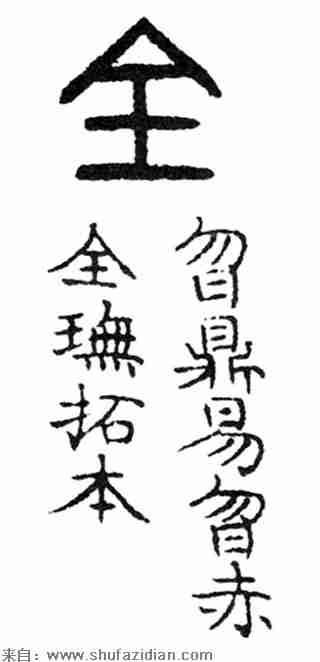 全
曶鼎易曶赤
全璑拓本
来自：www.shufazidian.com